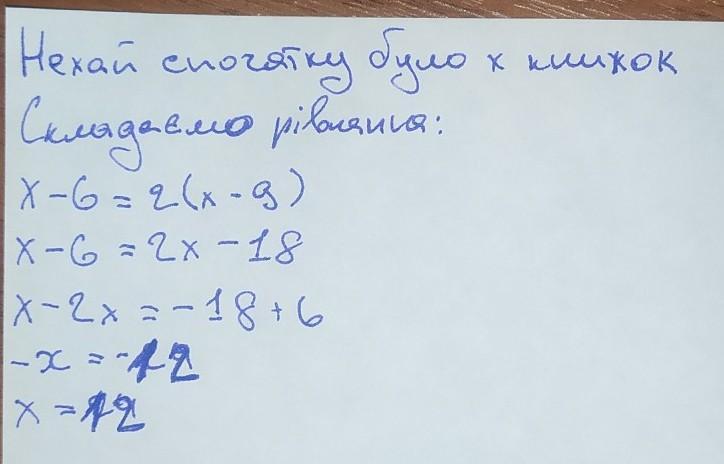 Нехай спочатку було х книжок
Складаємо рівняння:
x-6=2(x-9)
x-6=2x-18
x-2x=-18+6
-x=-12
x=12